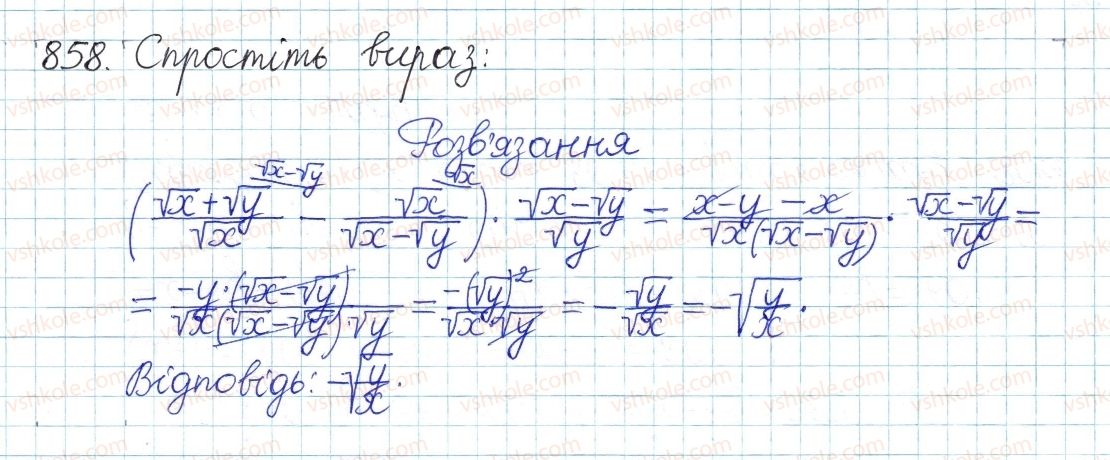 858. Спростіть вираз:
Розв'язання
(√x+√y/√x ^√x-√y - √x/√x-√y ^√x) · √x-√y/√y = x-y-x/√x(√x-√y) · √x-√y/√y =
= -y·(√x-√y)/√x(√x-√y)·√y = -(√y)²/√x·√y = -√y/√x = -√y/x.
Відповідь: -√y/x.